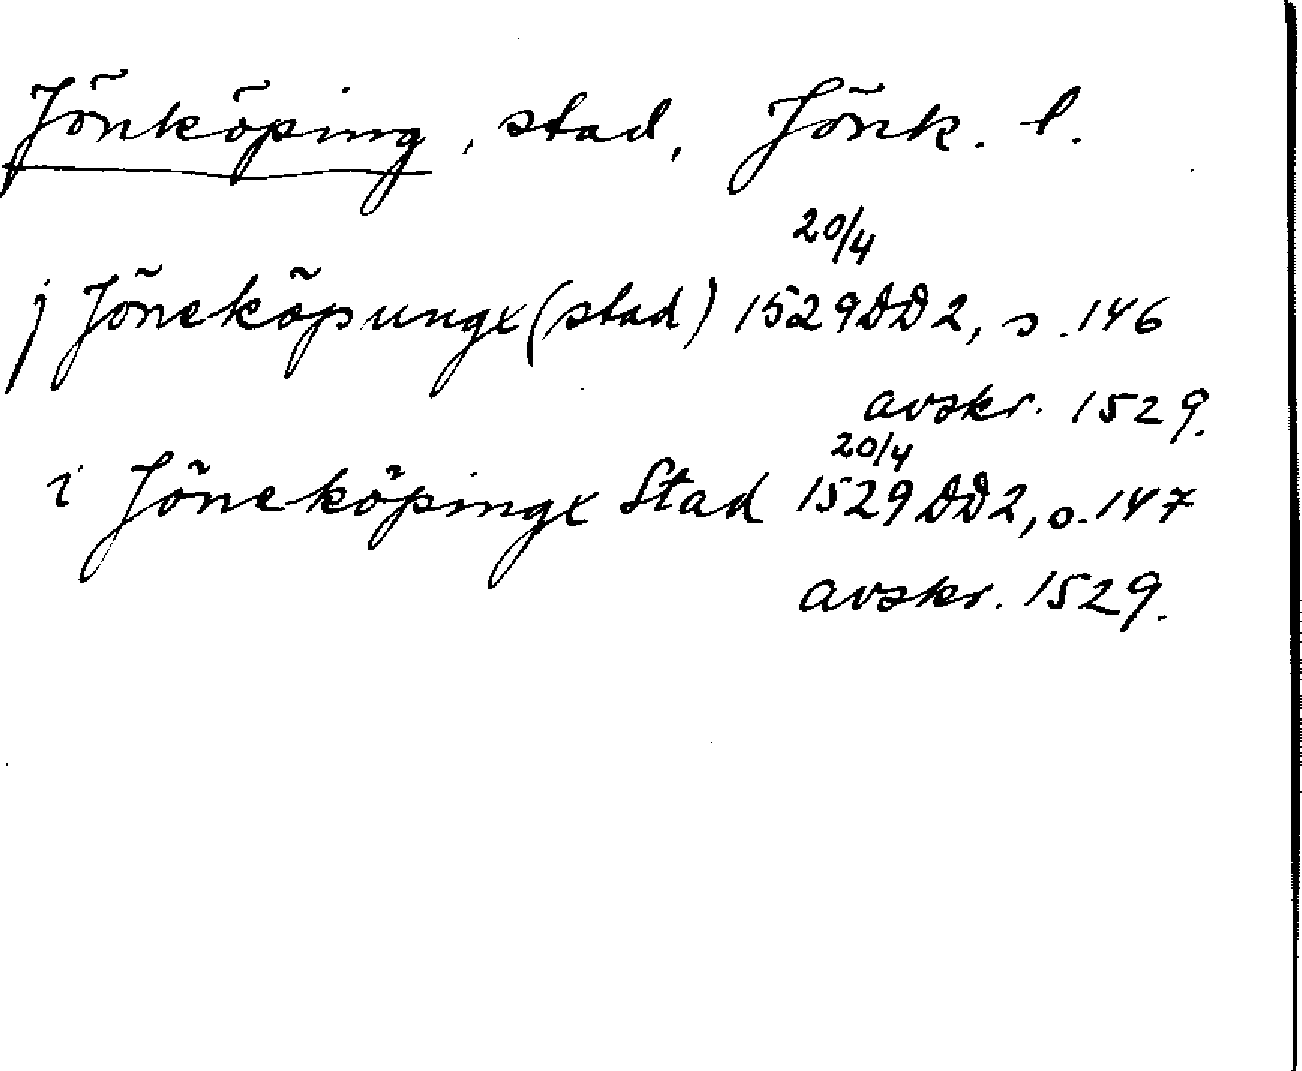 Jönköping, stad, Jönk. l.
20/4
j Jöneköpungx (stad) 1529 DD2, s. 146
avskr. 1529.
20/4
i Jöneköpingx Stad 1529 DD2, s. 147
avskr. 1529.